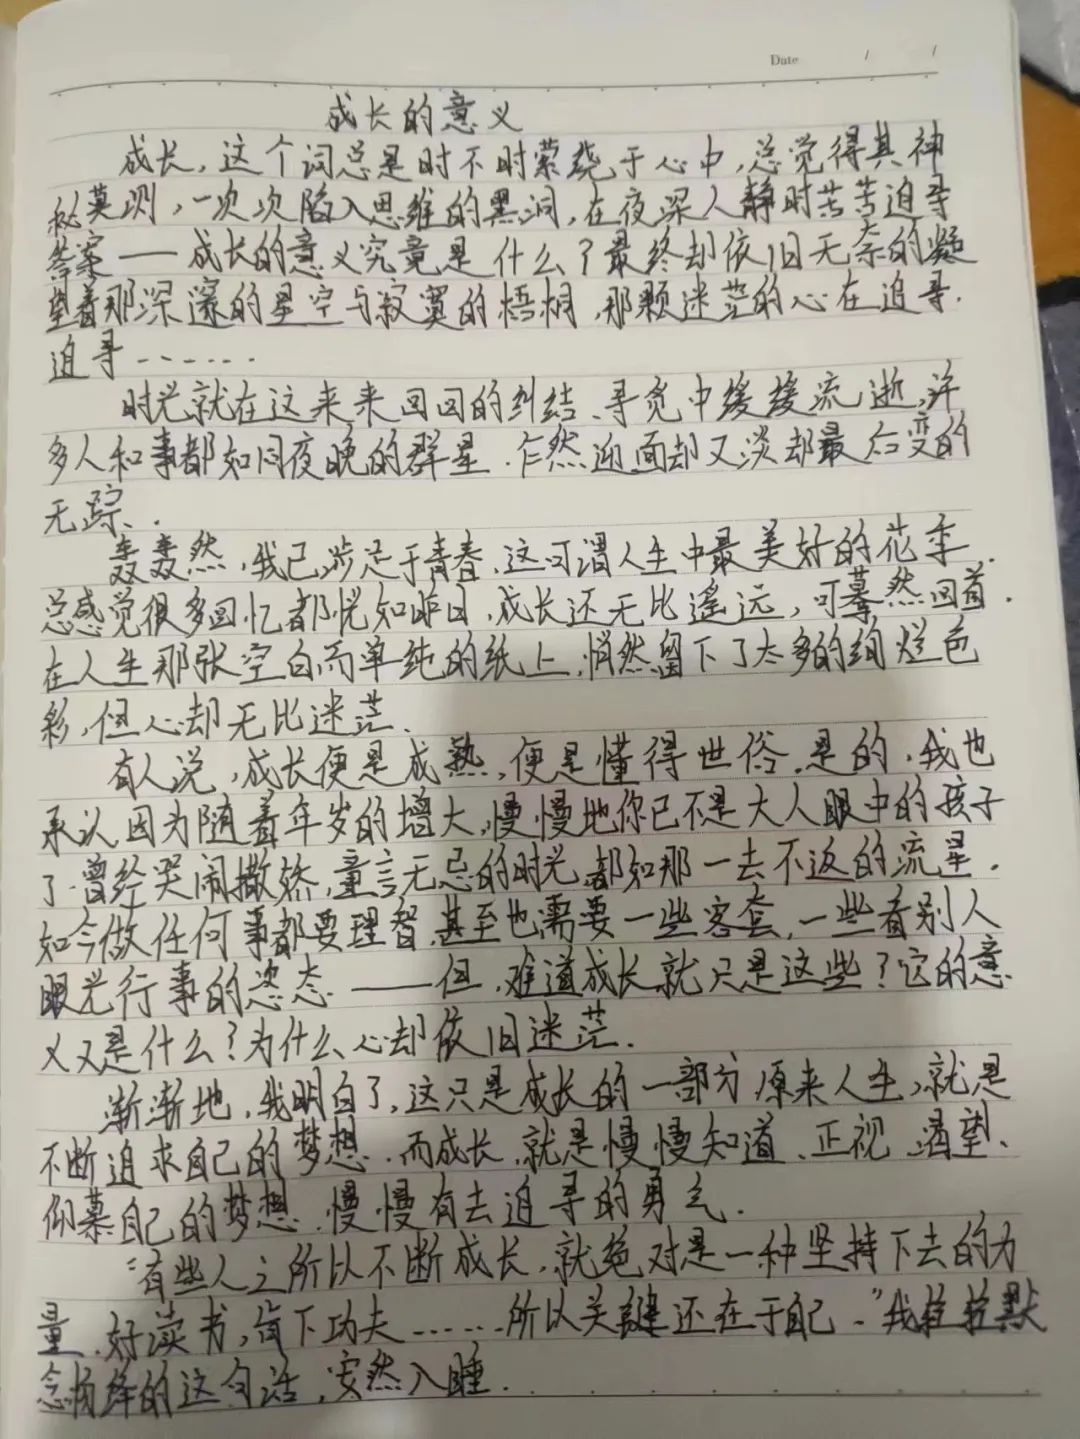 Date / /
成长的意义
成长，这个词总是时不时萦绕于心中，总觉得其神
秘莫测，一次次陷入思维的黑洞，在夜深人静时苦苦追寻
答案——成长的意义究竟是什么？最终却依旧无奈的凝
望着那深邃的星空与寂寞的梧桐，那颗迷茫的心在追寻.
追寻……
时光就在这来来回回的纠结、寻觅中缓缓流逝，许
多人和事都如同夜晚的群星.乍然迎面却又淡却最后变的
无踪.
轰轰然，我已涉足于青春，这可谓人生中最美好的花季.
总感觉很多回忆都恍如昨日，成长还无比遥远，可蓦然回首.
在人生那张空白而单纯的纸上，悄然留下了太多的绚烂色
彩，但心却无比迷茫.
有人说，成长便是成熟，便是懂得世俗.是的，我也
承认因为随着年岁的增大，慢慢地你已不是大人眼中的孩子
了.曾经哭闹撒娇，童言无忌的时光都如那一去不返的流星.
如今做任何事都要理智，甚至也需要一些客套，一些看别人
眼光行事的姿态——但，难道成长就只是这些？它的意
义又是什么？为什么心却依旧迷茫.
渐渐地，我明白了，这只是成长的一部分原来人生，就是
不断追求自己的梦想.而成长，就是慢慢知道、正视、渴望、
仰慕自己的梦想.慢慢有去追寻的勇气.
“有些人之所以不断成长，就绝对是一种坚持下去的力
量.好读书，肯下功夫……所以关键还在于自己.”我默
念杨绛的这句话，安然入睡.